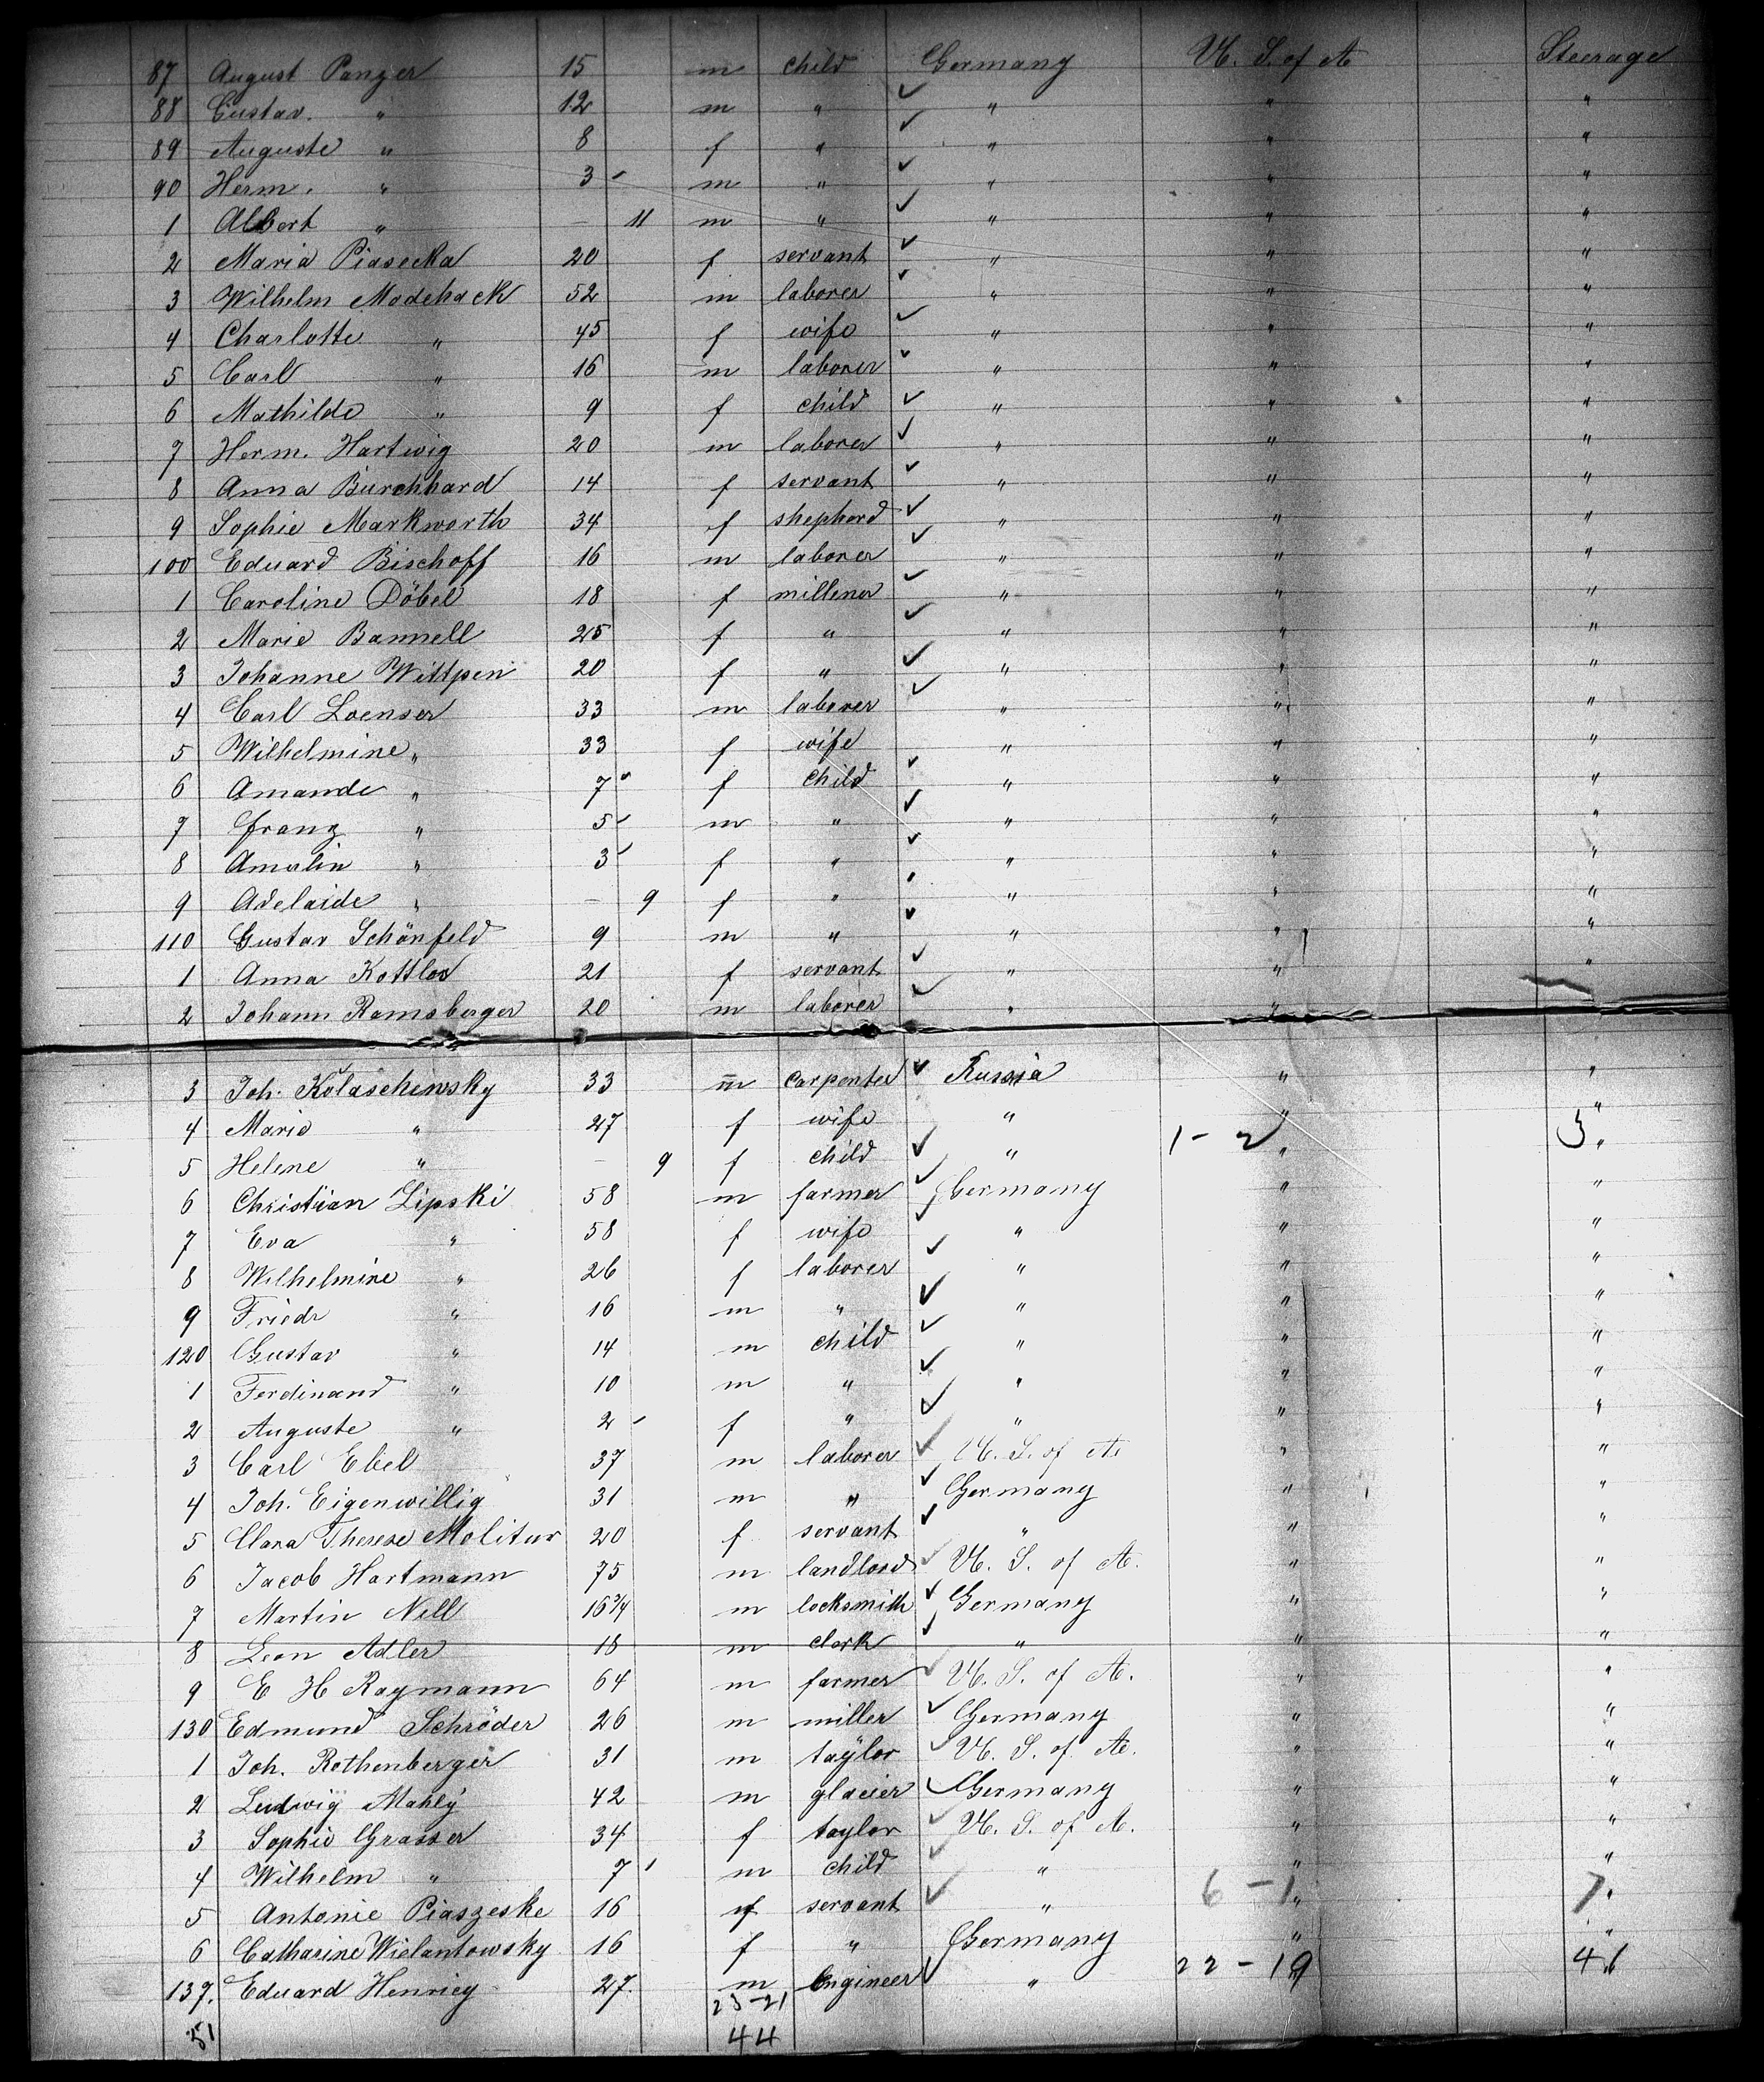 87 August Panzer 15 m child Germany U. S. of A Steerage
88 Gustav. " 12 m " " " "
89 Auguste " 8 f " " " "
90 Herm. " 3 m " " " "
1 Albert " — 11 m " " " "
2 Maria Piasecka 20 f servant " " "
3 Wilhelm Modehack 52 m laborer " " "
4 Charlotte " 45 f wife " " "
5 Carl " 16 m laborer " " "
6 Mathilde " 9 f child " " "
7 Herm. Hartwig 20 m laborer " " "
8 Anna Burchhard 14 f servant " " "
9 Sophie Markworth 34 f shepherd " " "
100 Eduard Bischoff 16 m laborer " " "
1 Caroline Döbel 18 f millener " " "
2 Marie Bannell 25 f " " " "
3 Johanne Wittpen 20 f " " " "
4 Carl Loenser 33 m laborer " " "
5 Wilhelmine " 33 f wife " " "
6 Amande " 7 f child " " "
7 Franz " 5 m " " " "
8 Amalin " 3 f " " " "
9 Adelaide " — 9 f " " " "
110 Gustav Schönfeld 9 m " " " "
1 Anna 21 f servant " " "
2 Johann Ramsberger 20 m laborer " " "
3 Joh. Kolaschinsky 33 m carpenter Russia " "
4 Marie " 27 f wife " " "
5 Helene " — 9 f child " 1 - 2 " 3 "
6 Christian Lipski 58 m farmer Germany " "
7 Eva " 58 f wife " " "
8 Wilhelmine " 26 f laborer " " "
9 Friedr " 16 m " " " "
120 Gustav " 14 m child " " "
1 Ferdinand " 10 m " " " "
2 Auguste " 2 f " " " "
3 Carl Ebel 37 m laborer U. S. of A. " "
4 Joh. Eigenwillig 31 m " Germany " "
5 Clara Therese Molitur 20 f servant " " "
6 Jacob Hartmann 75 m landlord U. S. of A. " "
7 Martin Nell 16 3/4 m locksmith Germany " "
8 Leon Adler 18 m clerk " " "
9 E H Raymann 64 m farmer U. S. of A. " "
130 Edmund Schröder 26 m miller Germany " "
1 Joh. Rothenberger 31 m taylor U. S. of A. " "
2 Ludwig Mahly 42 m glacier Germany " "
3 Sophie Grasser 34 f taylor U. S. of A. " "
4 Wilhelm " 7 m child " " "
5 Antonie Piaszeske 16 f servant " 6 - 1 " 7 "
6 Catharine Wielantowsky 16 f " Germany " "
137. Eduard Henriey 27. m Engineer " 22 - 19 " 41 "
23-21
51 44